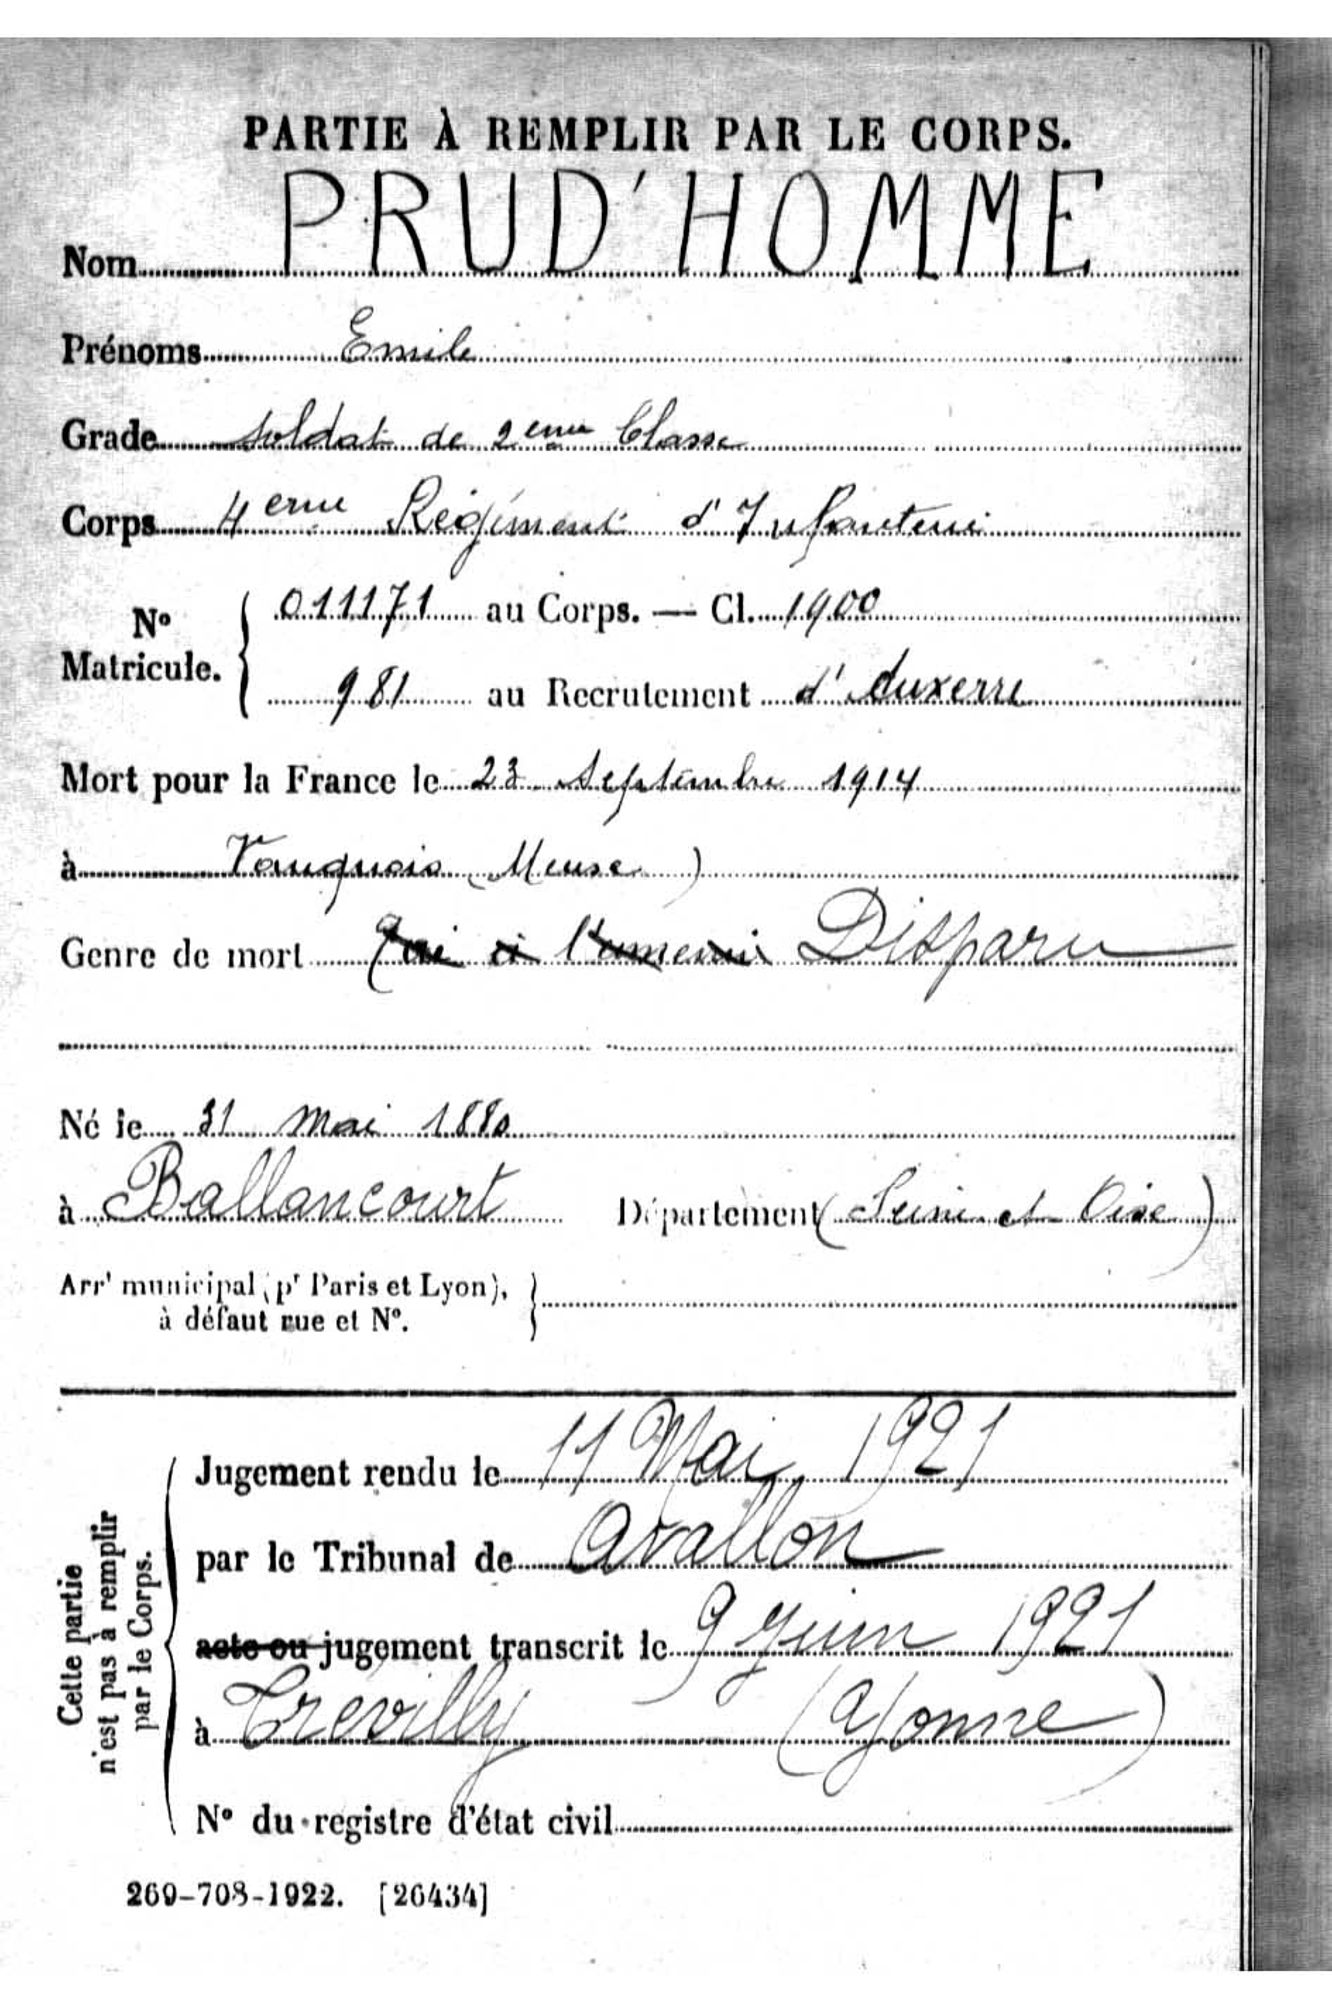 PARTIE À REMPLIR PAR LE CORPS.
Nom PRUD'HOMME
Prénoms Emile
Grade soldat de 2eme Classe
Corps 4eme Régiment d'Infanterie
N° Matricule. { 011171 au Corps. — Cl. 1900
981 au Recrutement d'Auxerre
Mort pour la France le 23 Septembre 1914
à Vauquois (Meuse)
Genre de mort Tué à l'ennemi Disparu
Né le 31 Mai 1880
à Ballancourt Département (Seine et Oise)
Arrt municipal (pr Paris et Lyon),
à défaut rue et N°.
Cette partie
n'est pas à remplir
par le Corps.
Jugement rendu le 11 Mai 1921
par le Tribunal de Avallon
acte ou jugement transcrit le 9 Juin 1921
à Trévilly (Yonne)
N° du registre d'état civil
269-708-1922. [26434]